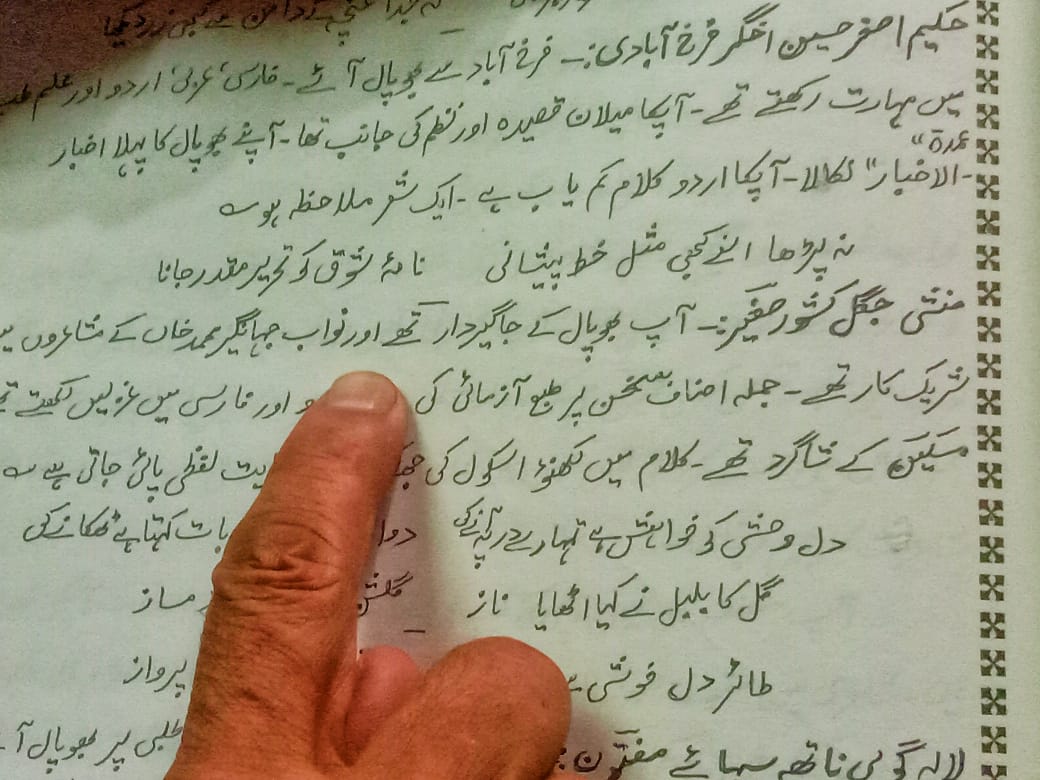 حکیم اصغر حسین اخگر فرخ آبادی:۔ فرخ آباد سے بھوپال آئے۔ فارسی، عربی، اردو اور علم
میں مہارت رکھتے تھے۔ آپکا میلان قصیدہ اور نظم کی جانب تھا۔ آپنے بھوپال کا پہلا اخبار
"عمدۃ
الاخبار" نکالا۔ آپکا اردو کلام کم یاب ہے۔ ایک شعر ملاحظہ ہو ؎
نہ پڑھا اسنے کبھی مثل خط پیشانی نامۂ شوق کو تحریر مقدر جانا
منشی جگل کشور صغیر:۔ آپ بھوپال کے جاگیردار تھے اور نواب جہانگیر محمد خاں کے مشاعروں میں
شریک کار تھے۔ جملہ اصناف سخن پر طبع آزمائی کی و اور فارسی میں غزلیں لکھتے
کے شاگرد تھے۔ کلام میں لکھنؤ اسکول کی لفظی پائی جاتی ہے ؎
دل وحشی کو خواہش ہے تمہارے در پہ آنے کی بات کہتا ہے ٹھکانے کی
گل کا بلبل نے کیا اٹھایا ناز
طائر دل خوشی پرواز
لالہ گوپی ناتھ سہائے مفتون: طلبی پر بھوپال آ